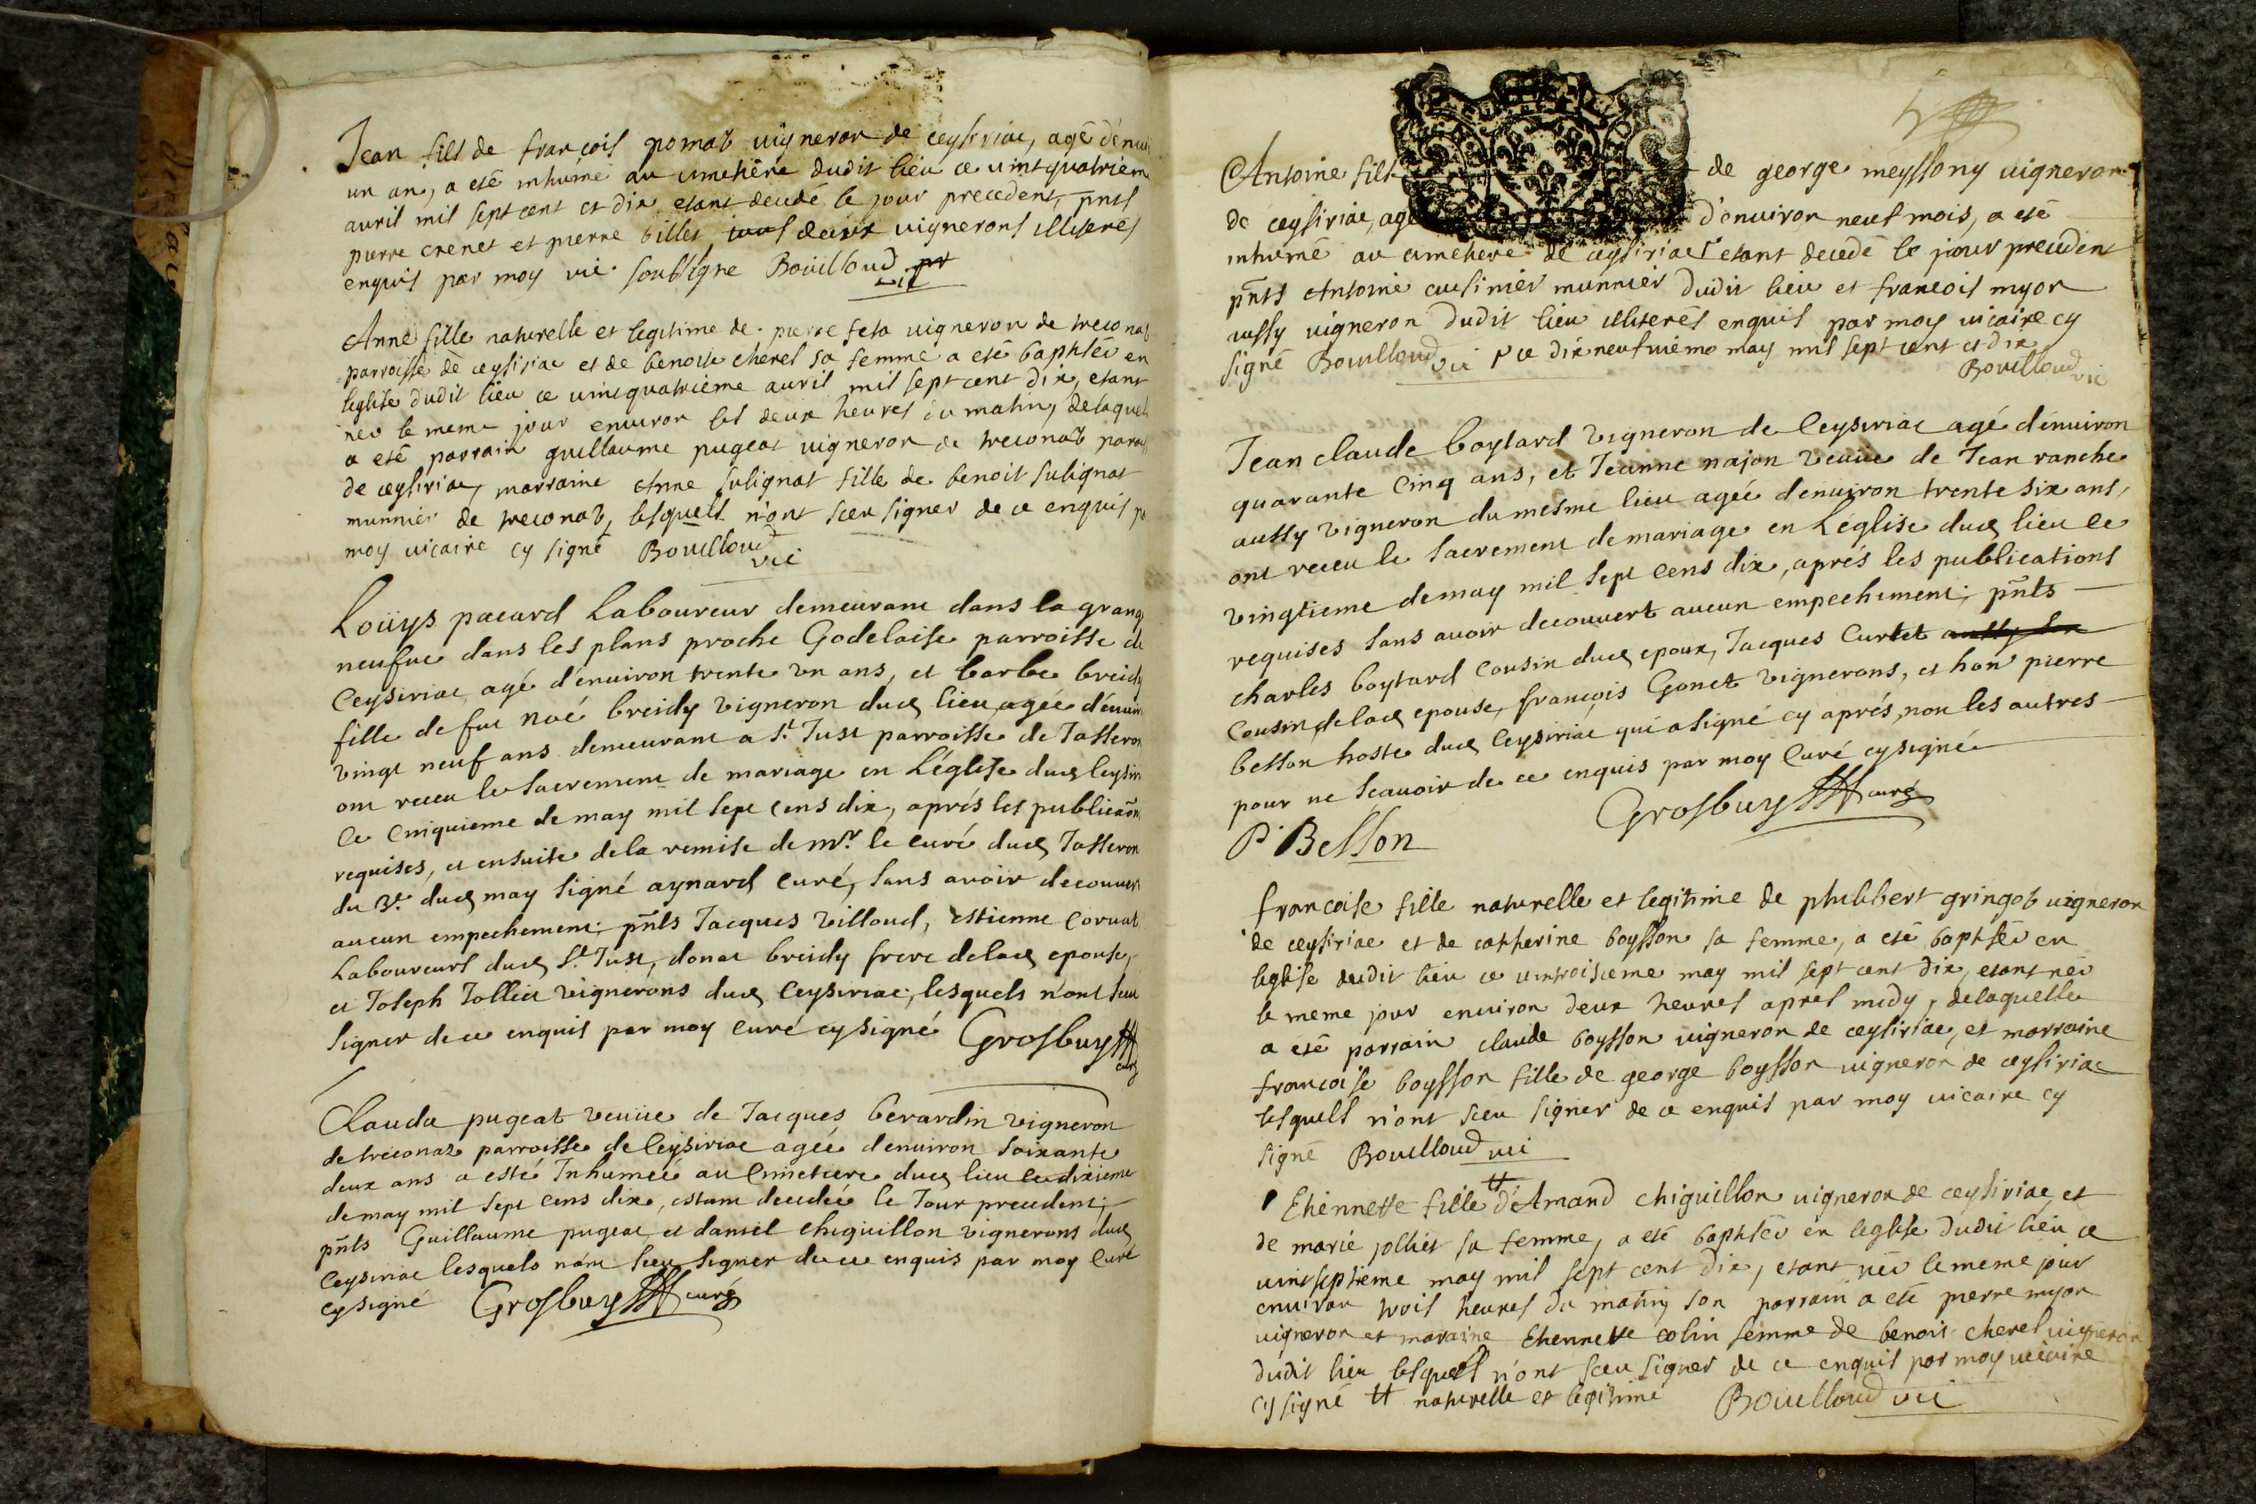 Jean fils de françois pomat vigneron de ceysiriac, agé d'envi
un an, a eté inhumé au cimetiere dudit lieu ce vintquatriem
avril mil sept cent et dix etant decedé le jour precedent, pnts
pierre crenet et pierre billet tous deux vignerons illiterés
enquis par moy vic. soubsigné Boüilloud pr
vic
Anne fille naturelle et legitime de pierre feta vigneron de treconas
parroisse de ceysiriac et de benoite cherel sa femme a eté baptisée en
leglise dudit lieu ce vintquatrième avril mil sept cent dix, etant
née le meme jour environ les deux heures du matin, delaquel
a eté parrain guillaume pugeat vigneron de treconas paroi
de ceysiriac, marraine Anne sulignat fille de benoit sulignat
munnier de treconas, lesquels n'ont sceu signer de ce enquis p
moy vicaire cy signé Bouilloud
vic
Loüys pacard Laboureur demeurant dans la grang
neufve dans les plans proche Godelaise parroisse de
Ceysiriac, agé d'environ trente un ans, et barbe breidy
fille de feu noé breidy vigneron dud lieu, agée d'envir
vingt neuf ans demeurant a St. Just parroisse de Jasseron
ont receu le Sacrement de mariage en L'église dud Ceysir
Ce Cinquieme de may mil sept cens dix, aprés les publicaõn
requises, et ensuite de la remise de mr. le curé dud Jasseron
du 3e. dud may signé aynard curé, sans avoir decouvert
aucun empechement; pnts Jacques villoud, estienne corvat
Laboureurs dud St. Just, donat breidy frere delad epouse,
et Joseph Jolliet vignerons dud Ceysiriac, lesquels n'ont sceu
signer de ce enquis par moy curé cy signé Grosbuy
curé
Clauda pugeat veuüe de Jacques berardin vigneron
de treconas parroisse de Ceysiriac agée d'environ soixante
deux ans a esté Inhumeé au Cimetiere dud lieu ce dixieme
de may mil sept cens dix, estant decedée le Jour precedent;
pnts Guillaume pugeat, et daniel chiguillon vignerons dud
Ceysiriac lesquels n'ont sceu signer de ce enquis par moy Curé
cy signé Grosbuy curé
Antoine fils de george meyssony vigneron
de ceysiriac, agé d'environ neuf mois, a eté
inhumé au cimetiere de ceysiriac etant decedé le jour preceden
pnts Antoine cusinier munnier dudit lieu et francois myon
aussy vigneron dudit lieu illiterés enquis par moy vicaire cy
signé Bouilloud vic ce dixneufvième may mil sept cent et dix
Bouilloud vic
Jean claude boytard vigneron de Ceysiriac agé d'environ
quarante Cinq ans, et Jeanne najon veuüe de Jean ranche
aussy vigneron du mesme lieu agée d'environ trente six ans,
ont receu le Sacrement de mariage en L'église dud lieu ce
vingtieme de may mil sept cens dix, aprés les publications
requises sans avoir decouvert aucun empechement; pnts
charles boytard cousin dud epoux, Jacques Curtet
Cousin delad epouse, françois Gonet vignerons, et hon pierre
besson hoste dud Ceysiriac qui a signé cy aprés, non les autres
pour ne Scavoir de ce enquis par moy Curé cy signé
P. Besson Grosbuy curé
francoise fille naturelle et legitime de philibert gringot vigneron
de ceysiriac et de catherine boysson sa femme, a eté baptisée en
leglise dudit lieu ce vintroisieme may mil sept cent dix, etant née
le meme jour environ deux heures apres midy, delaquelle
a eté parrain claude boysson vigneron de ceysiriac, et marraine
francoise boysson fille de george boysson vigneron de ceysiriac
lesquels n'ont sceu signer de ce enquis par moy vicaire cy
signé Bouilloud vic
Etiennette fille tt d'Amand chiguillon vigneron de ceysiriac, et
de marie jolliet sa femme, a eté baptisée en leglise dudit lieu ce
vintseptieme may mil sept cent dix, etant née le meme jour
environ trois heures du matin, son parrain a eté pierre myon
vigneron et maraine Etiennette colin femme de benoit cherel vigneron
dudit lieu lesquels n'ont sceu signer de ce enquis par moy vicaire
cy signé tt naturelle et legitime Bouilloud vic